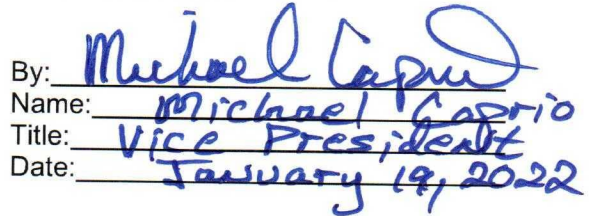 By: Michael Caprio
Name: Michael Caprio
Title: Vice President
Date: January 19, 2022